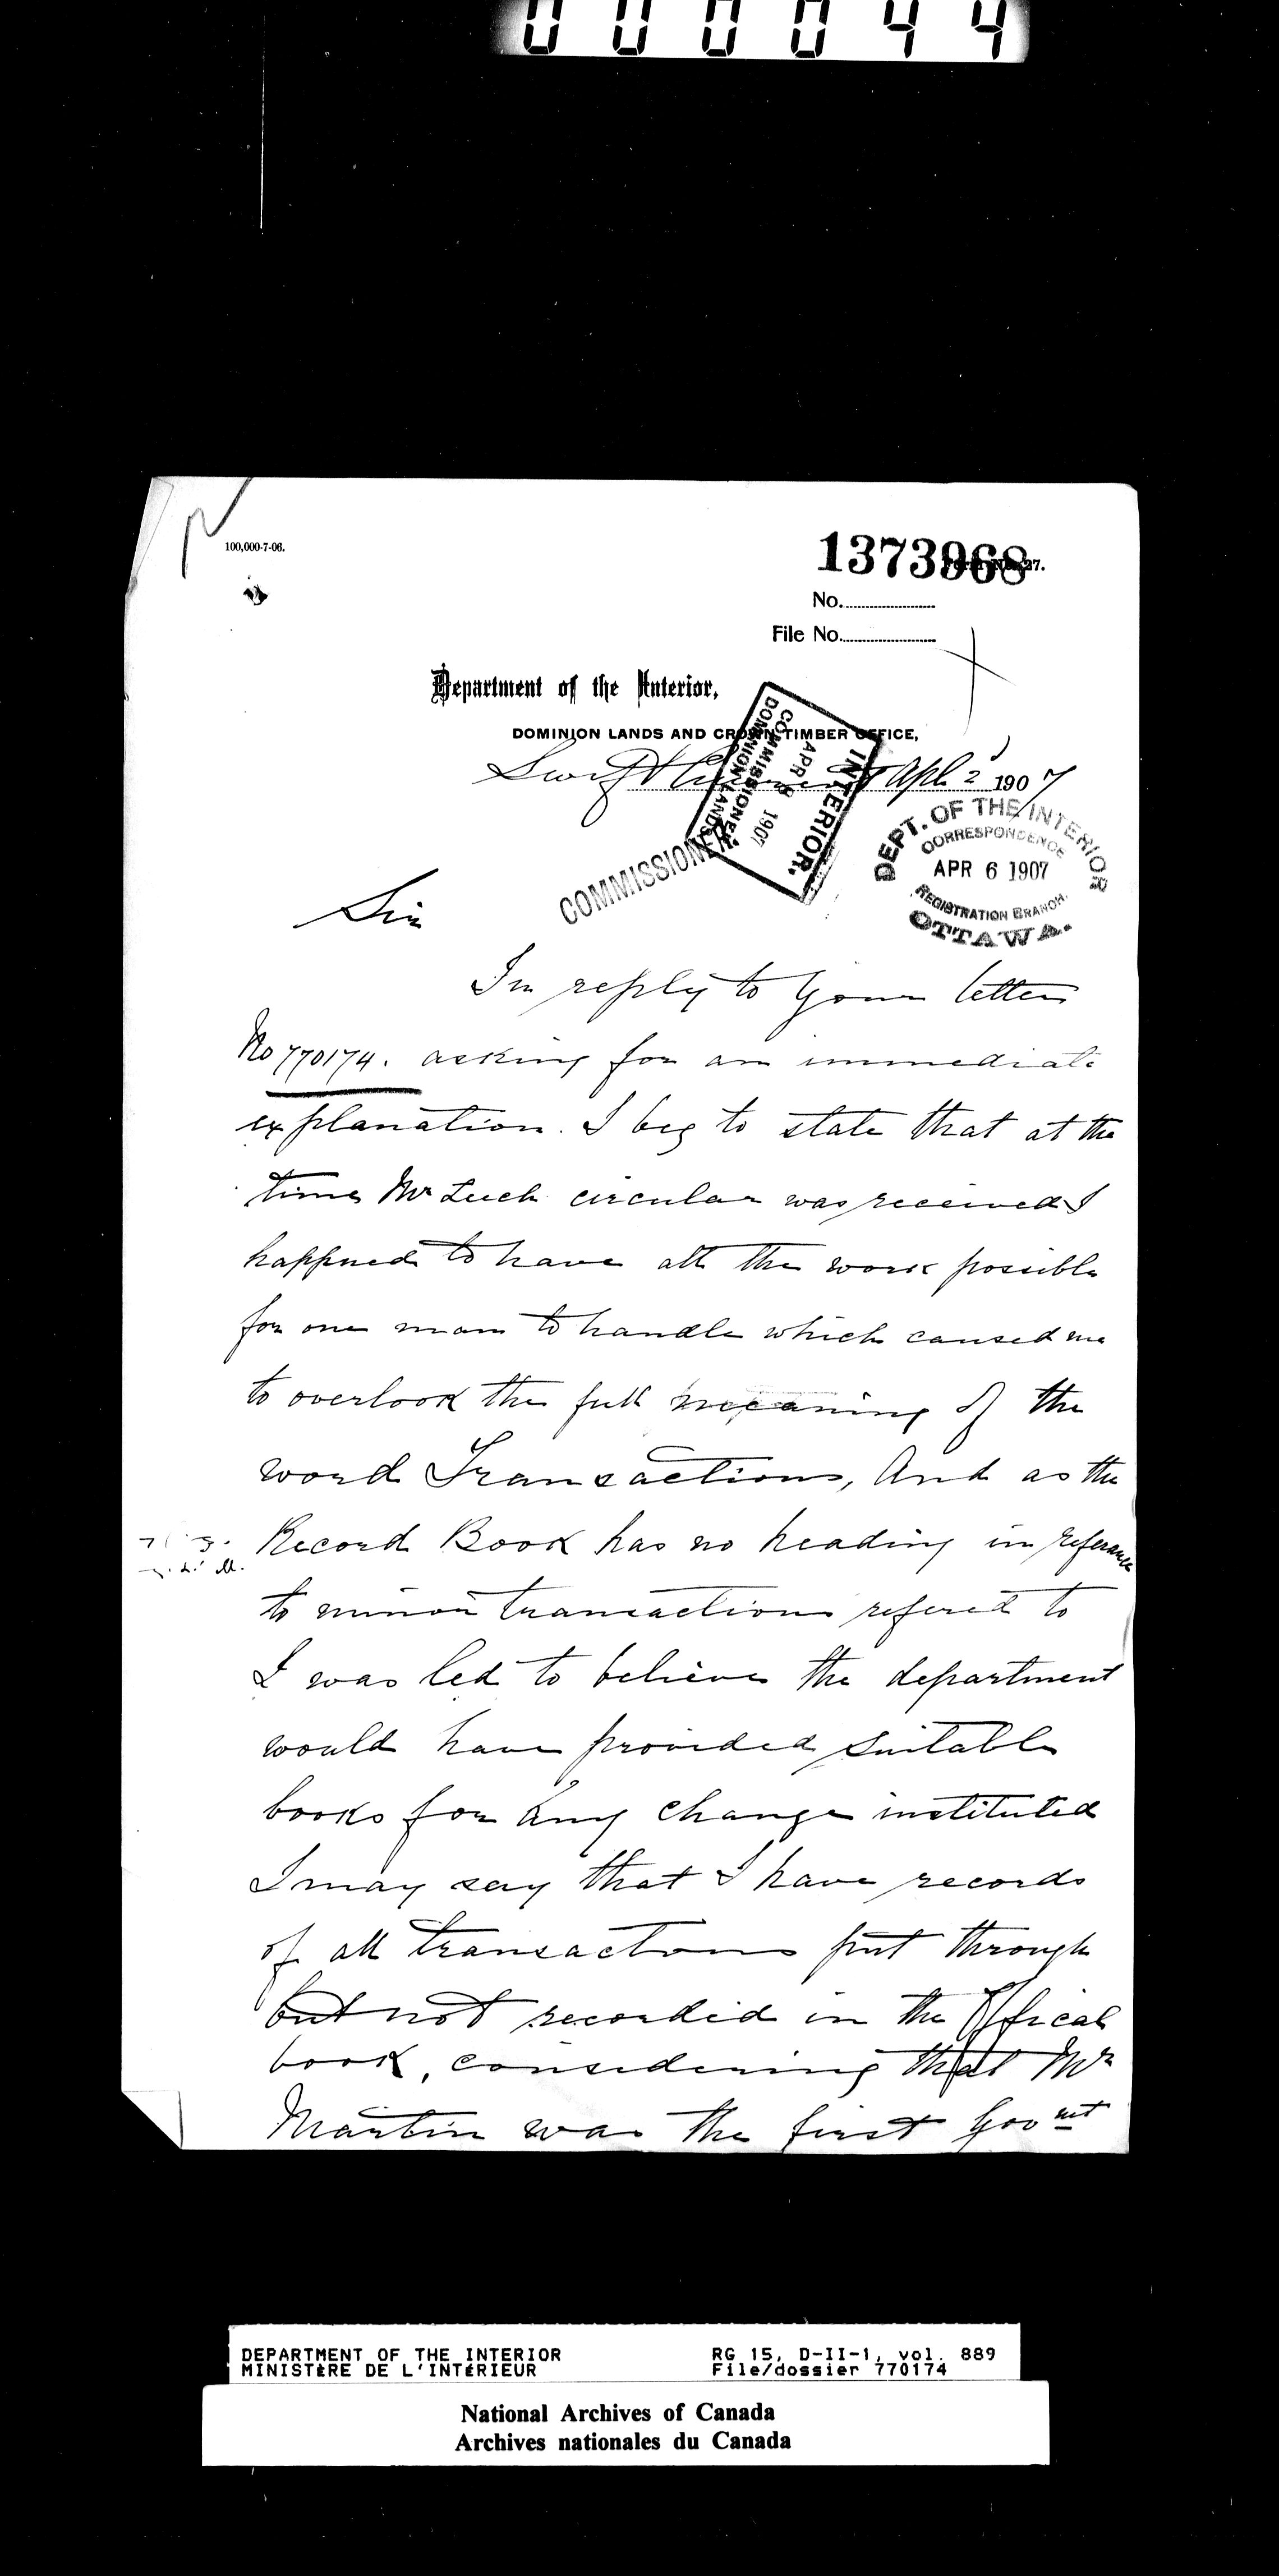 000044
100,000-7-06.
1373968
27.
No.
File No.
Department of the Interior,
DOMINION LANDS AND CROWN TIMBER OFFICE,
Swift Current Apl 2 1907
INTERIOR.
APR 8 1907
COMMISSIONER
DOMINION LANDS
COMMISSIONER
DEPT. OF THE INTERIOR
CORRESPONDENCE
APR 6 1907
REGISTRATION BRANCH.
OTTAWA.
Sir
In reply to your letter
No 770174. asking for an immediate
explanation. I beg to state that at the
time Mr circular was received I
happned to have all the work possible
for one man to handle which caused me
to overlook the full meaning of the
word Transactions, And as the
Record Book has no heading in referance
to minor transactions refered to
I was led to believe the department
would have provided suitable
books for any change instituted
I may say that I have records
of all transactons put through
but not recorded in the Offical
book, considering that Mr
Martin was the first Govmt
DEPARTMENT OF THE INTERIOR
MINISTÈRE DE L'INTÉRIEUR
RG 15, D-II-1, vol. 889
File/dossier 770174
National Archives of Canada
Archives nationales du Canada